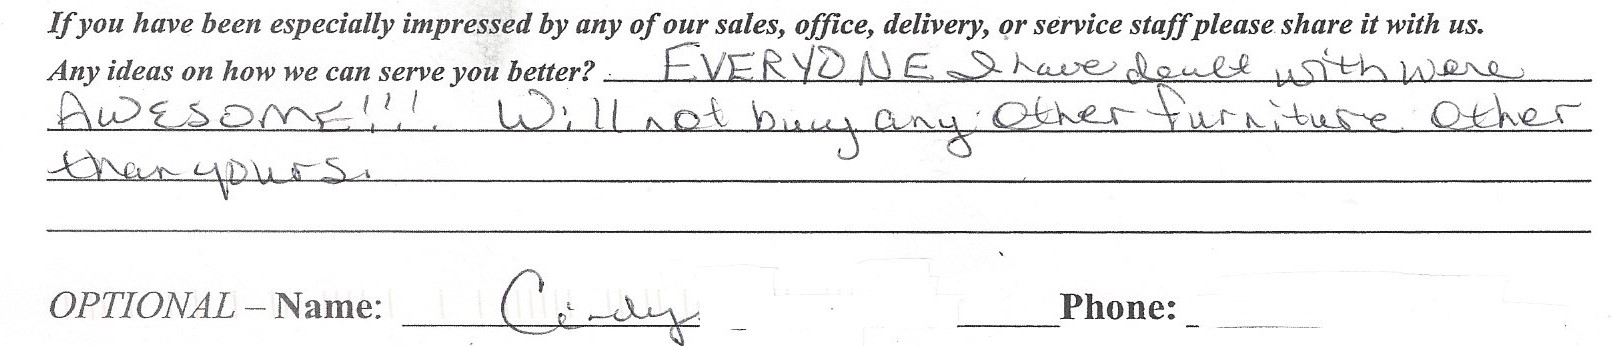 If you have been especially impressed by any of our sales, office, delivery, or service staff please share it with us.
Any ideas on how we can serve you better? EVERYONE I have dealt with were
AWESOME!!! Will not buy any other furniture other
than yours.
OPTIONAL – Name: Cindy Phone: